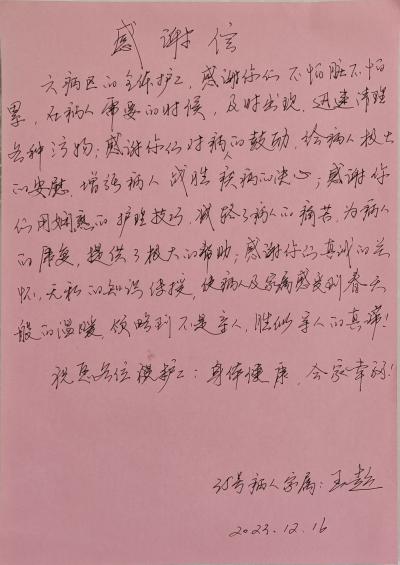 感谢信
六病区的全体护工，感谢你们不怕脏不怕
累，在病人需要的时候，及时出现，迅速清理
各种污物；感谢你们对病人的鼓励，给病人极大
的安慰，增强病人战胜疾病的决心；感谢你
们用娴熟的护理技巧，减轻了病人的痛苦，为病人
的康复，提供了极大的帮助；感谢你们真诚的关
怀，无私的知识传授，使病人及家属感受到春天
般的温暖，领略到不是亲人，胜似亲人的真谛！
祝愿各位护工：身体健康，合家幸福！
35号病人家属：王彭
2023.12.16